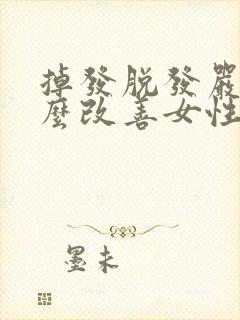 掉發脫發嚴
麼改善女性
墨未